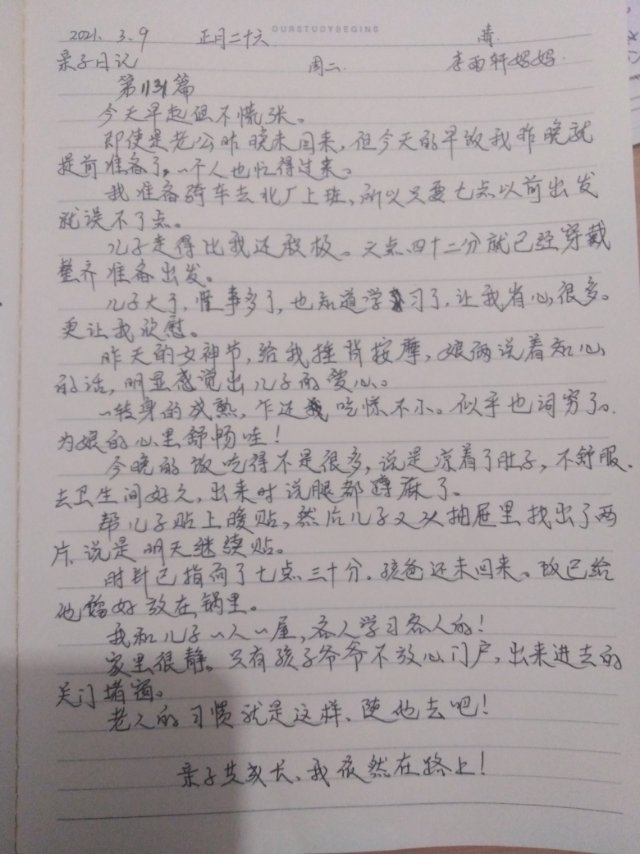 OURSTUDYBEGINS
2021. 3. 9 正月二十六 晴
亲子日记 周二 李雨轩妈妈
第1131篇
今天早起但不慌张。
即使是老公昨晚未回来，但今天的早饭我昨晚就
提前准备了，一个人也忙得过来。
我准备骑车去北厂上班，所以只要七点以前出发
就误不了点。
儿子走得比我还积极。六点四十二分就已经穿戴
整齐准备出发。
儿子大了，懂事多了，也知道学习了，让我省心很多。
更让我欣慰。
昨天的女神节，给我捶背按摩，娘俩说着知心
的话，明显感觉出儿子的爱心。
一转身的成熟，乍还我吃惊不小。似乎也词穷了。
为娘的心里舒畅哇！
今晚的饭吃得不是很多，说是凉着了肚子，不舒服。
去卫生间好久，出来时说腿都蹲麻了。
帮儿子贴上暖贴，然后儿子又从抽屉里找出了两
片，说是明天继续贴。
时针已指向了七点三十分。孩爸还未回来。饭已给
他馏好放在锅里。
我和儿子一人一屋，各人学习各人的！
家里很静。只有孩子爷爷不放心门户，出来进去的
关门堵。
老人的习惯就是这样、随他去吧！
亲子共成长、我依然在路上！